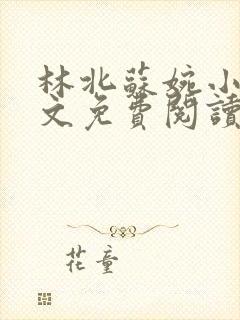 林北蘇婉小
文免費閱讀
花童